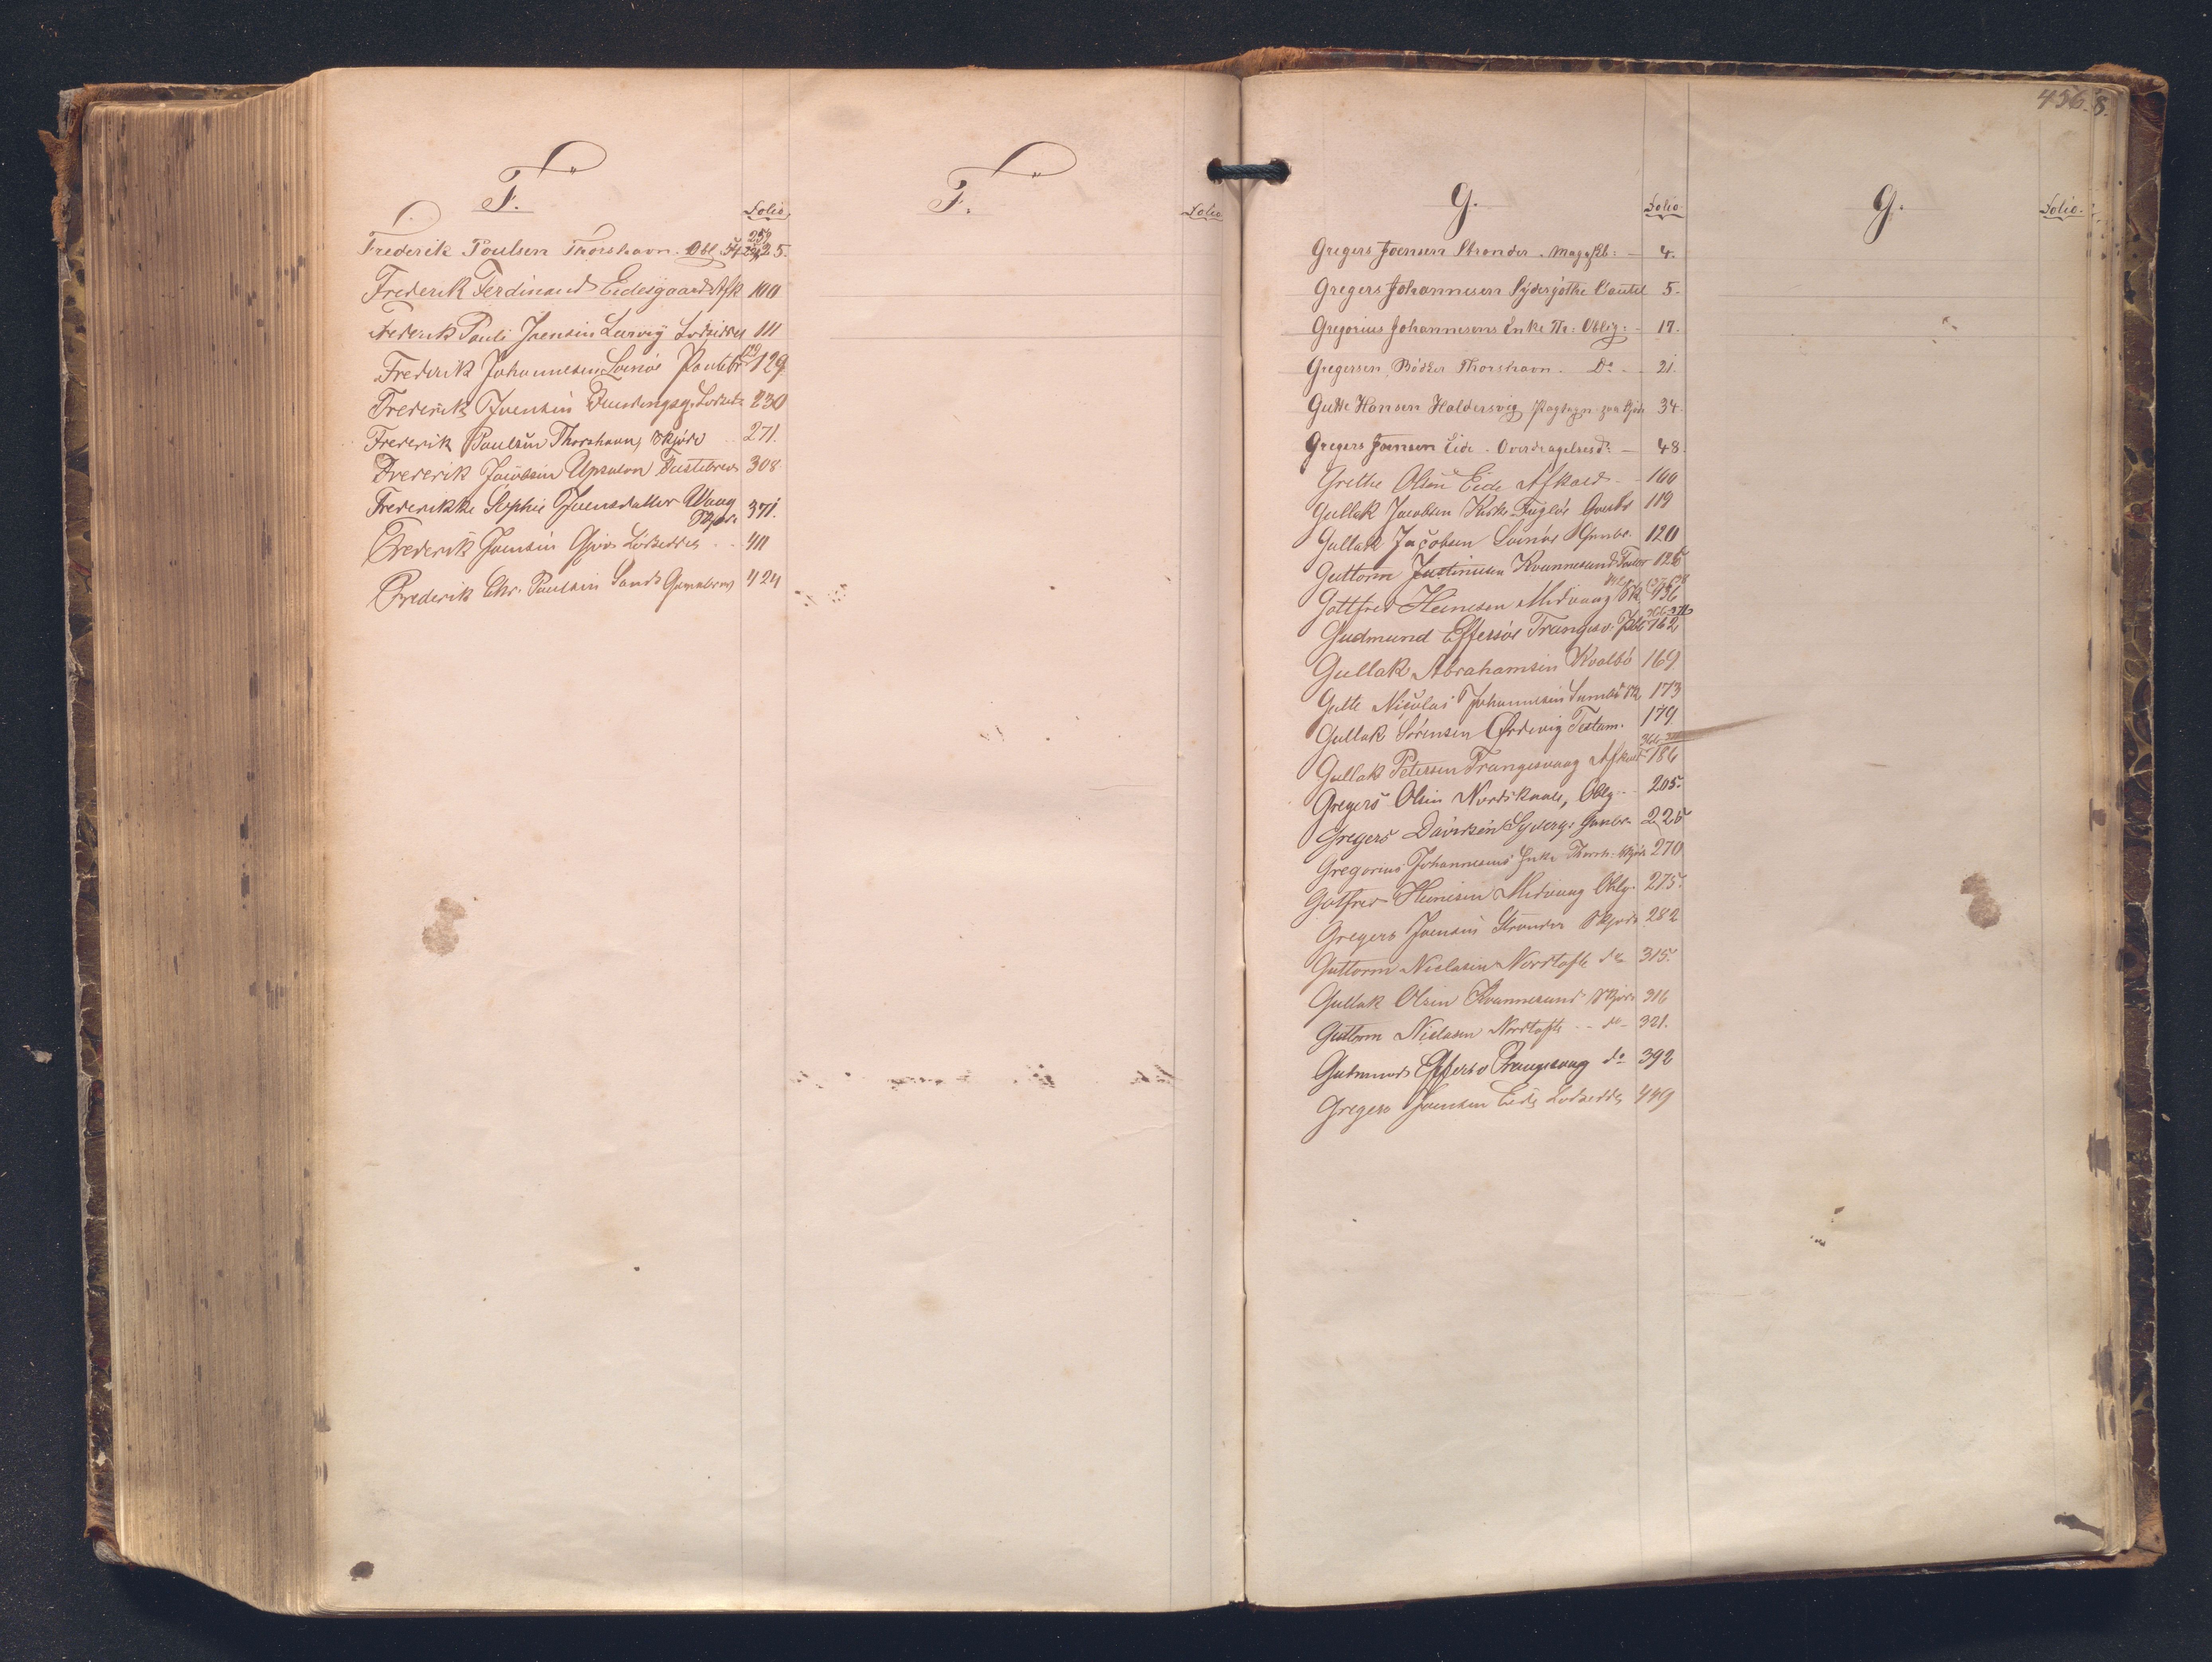 F.
Folio.
Frederik Poulsen Thorshavn. Obl. 54 25.
259
Frederik Ferdinand Eidesgaard Afk 100
Frederik Pauli Joensen Lervig Lodseddel 111
Frederik Johannesen Svinöe Pantebr 129
Frederik Joensen Lodsedl 230
Frederik Paulsen Thorshavn, Skjöde 271.
Frederik Jacobsen Festebrev 308
Frederikke Sophie Joensdatter Waag 371.
Skjöde
Frederik Joensen Gjov Lodseddel 411
Frederik Chr. Paulsen Sand 424
F.
Folio.
456.
G.
Folio.
Gregers Joensen Strender. 4.
Gregers Johannesen Sydergöthe 5.
Gregorius Johannesens Enke Th: Oblig: 17.
Gregersen, Bödker Thorshavn. Do. 21.
Gutte Hansen Haldersvig 34.
Gregers Joensen Eide. Overdragelsesd: 48.
Grethe Olsen Eide Afkald 100
Gullak Jacobsen Kirke Fuglöe 119
Gullak Jacobsen Svinöe 120
Guttorm Justinusen Kvannesund 126
Gottfred Heinesen Midvaag Sk 136
Gudmund Effersöe Trangisv. 162
Gullak Abrahamsen Kvalbö 169
Gutte Nicolai Johannesen Sumbö Sk 173
Gullak Sörensen Ördevig Testam. 179.
Gullak Petersen Trangesvaag Afkald 186
Gregers Olsen Nordskaale, Oblg. 205.
Gregers Davidsen Syderg. 225
Gregorius Johannesens Enke Thorsh. Skjöde 270
Gotfred Heinesen Midvaag Oblg. 275.
Gregers Joensen Strender Skjöde 282
Guttorm Niclasen Nordtofte do 315.
Gullak Olsen Kvannesund Skjöde 316
Guttorm Niclasen Nordtofte do 321.
Gudmund Effersö Trangisvaag do 392
Gregers Joensen Eide Lodseddel 449
G.
Folio.